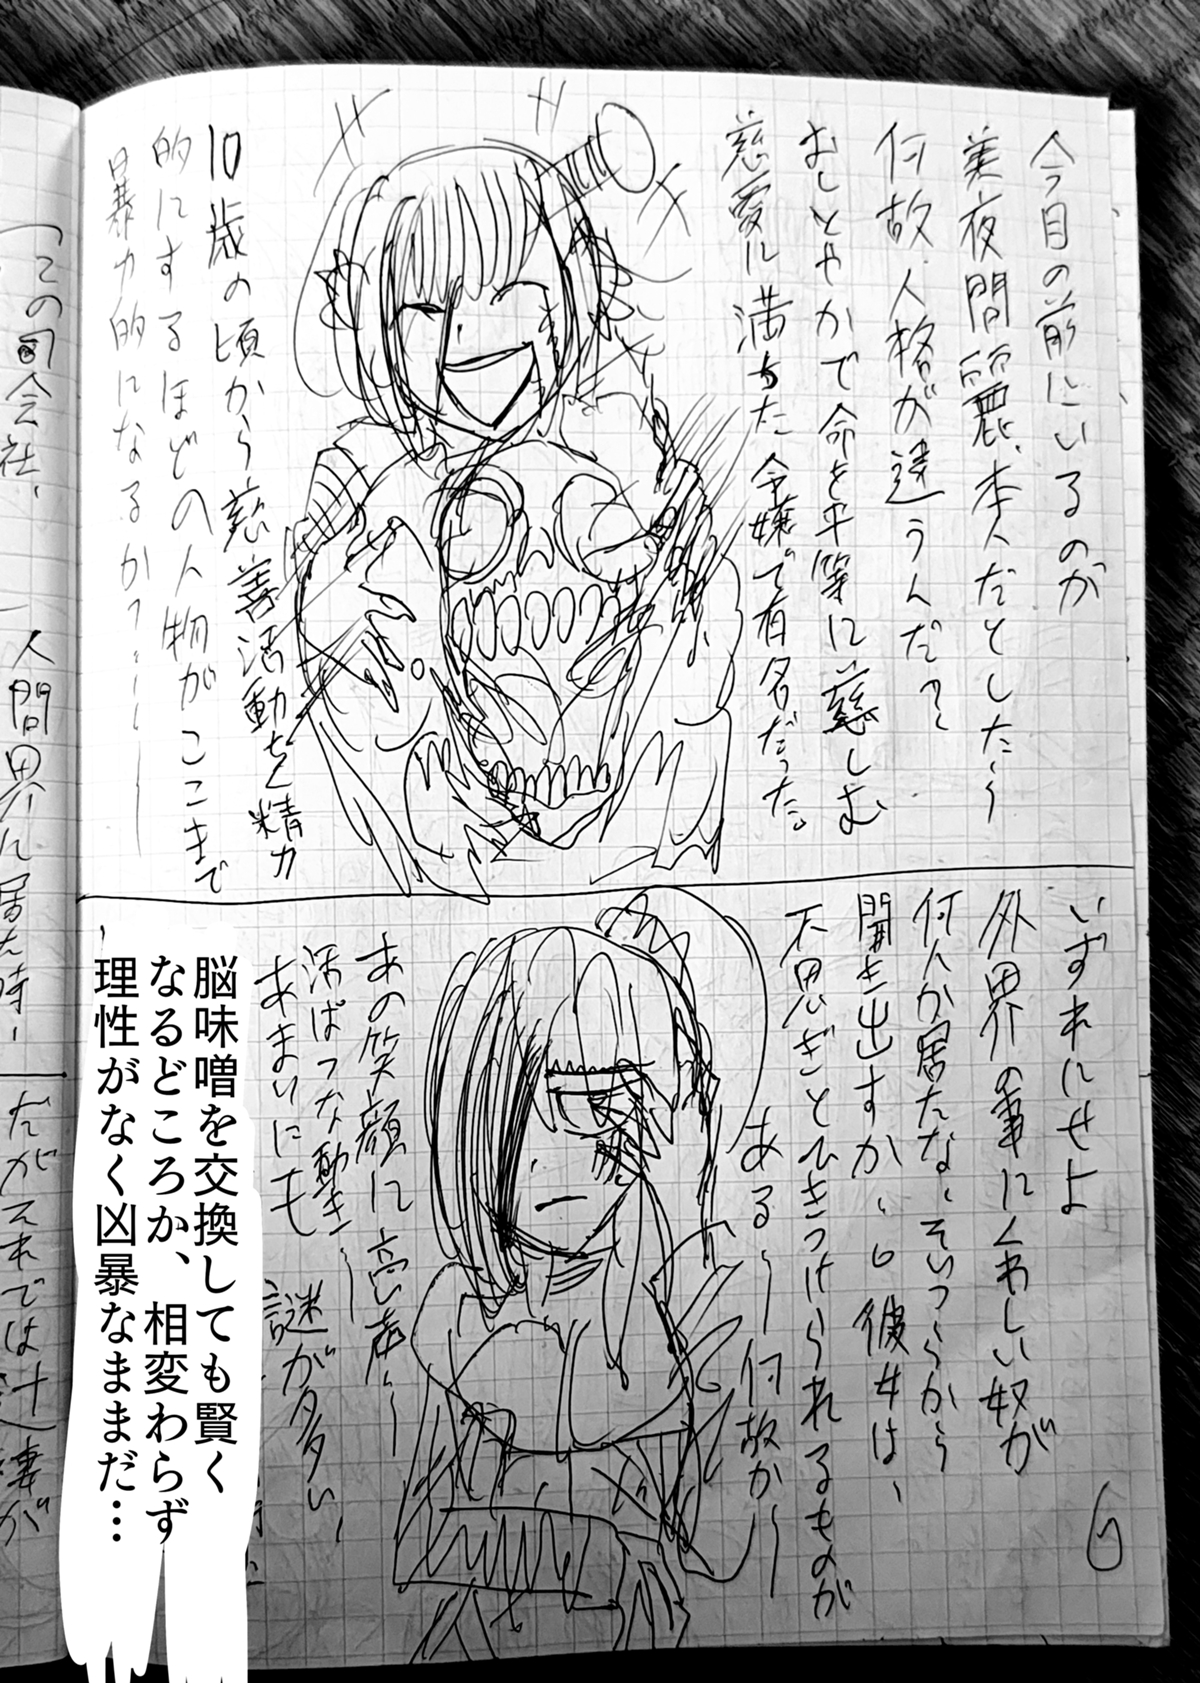 今目の前にいるのが
美夜間麗、本人だとしたら
何故、人格が違うんだ?
おしとやかで命を平等に慈しむ
慈愛に満ちた令嬢で有名だった。
10歳の頃から慈善活動を精力
的にするほどの人物がここまで
暴力的になるか?
いずれにせよ
外界の事にくわしい奴が
何人か居たな、そいつらから
聞き出すか、彼女は、
不思ぎとひきつけられるものが
ある 何故か
あの笑顔に高い声
活ぱつな動き
あまりにも
謎が多い
脳味噌を交換しても賢く
なるどころか、相変わらず
理性がなく凶暴なままだ…
6
この司会社、
人間界に居た時
だがそれでは